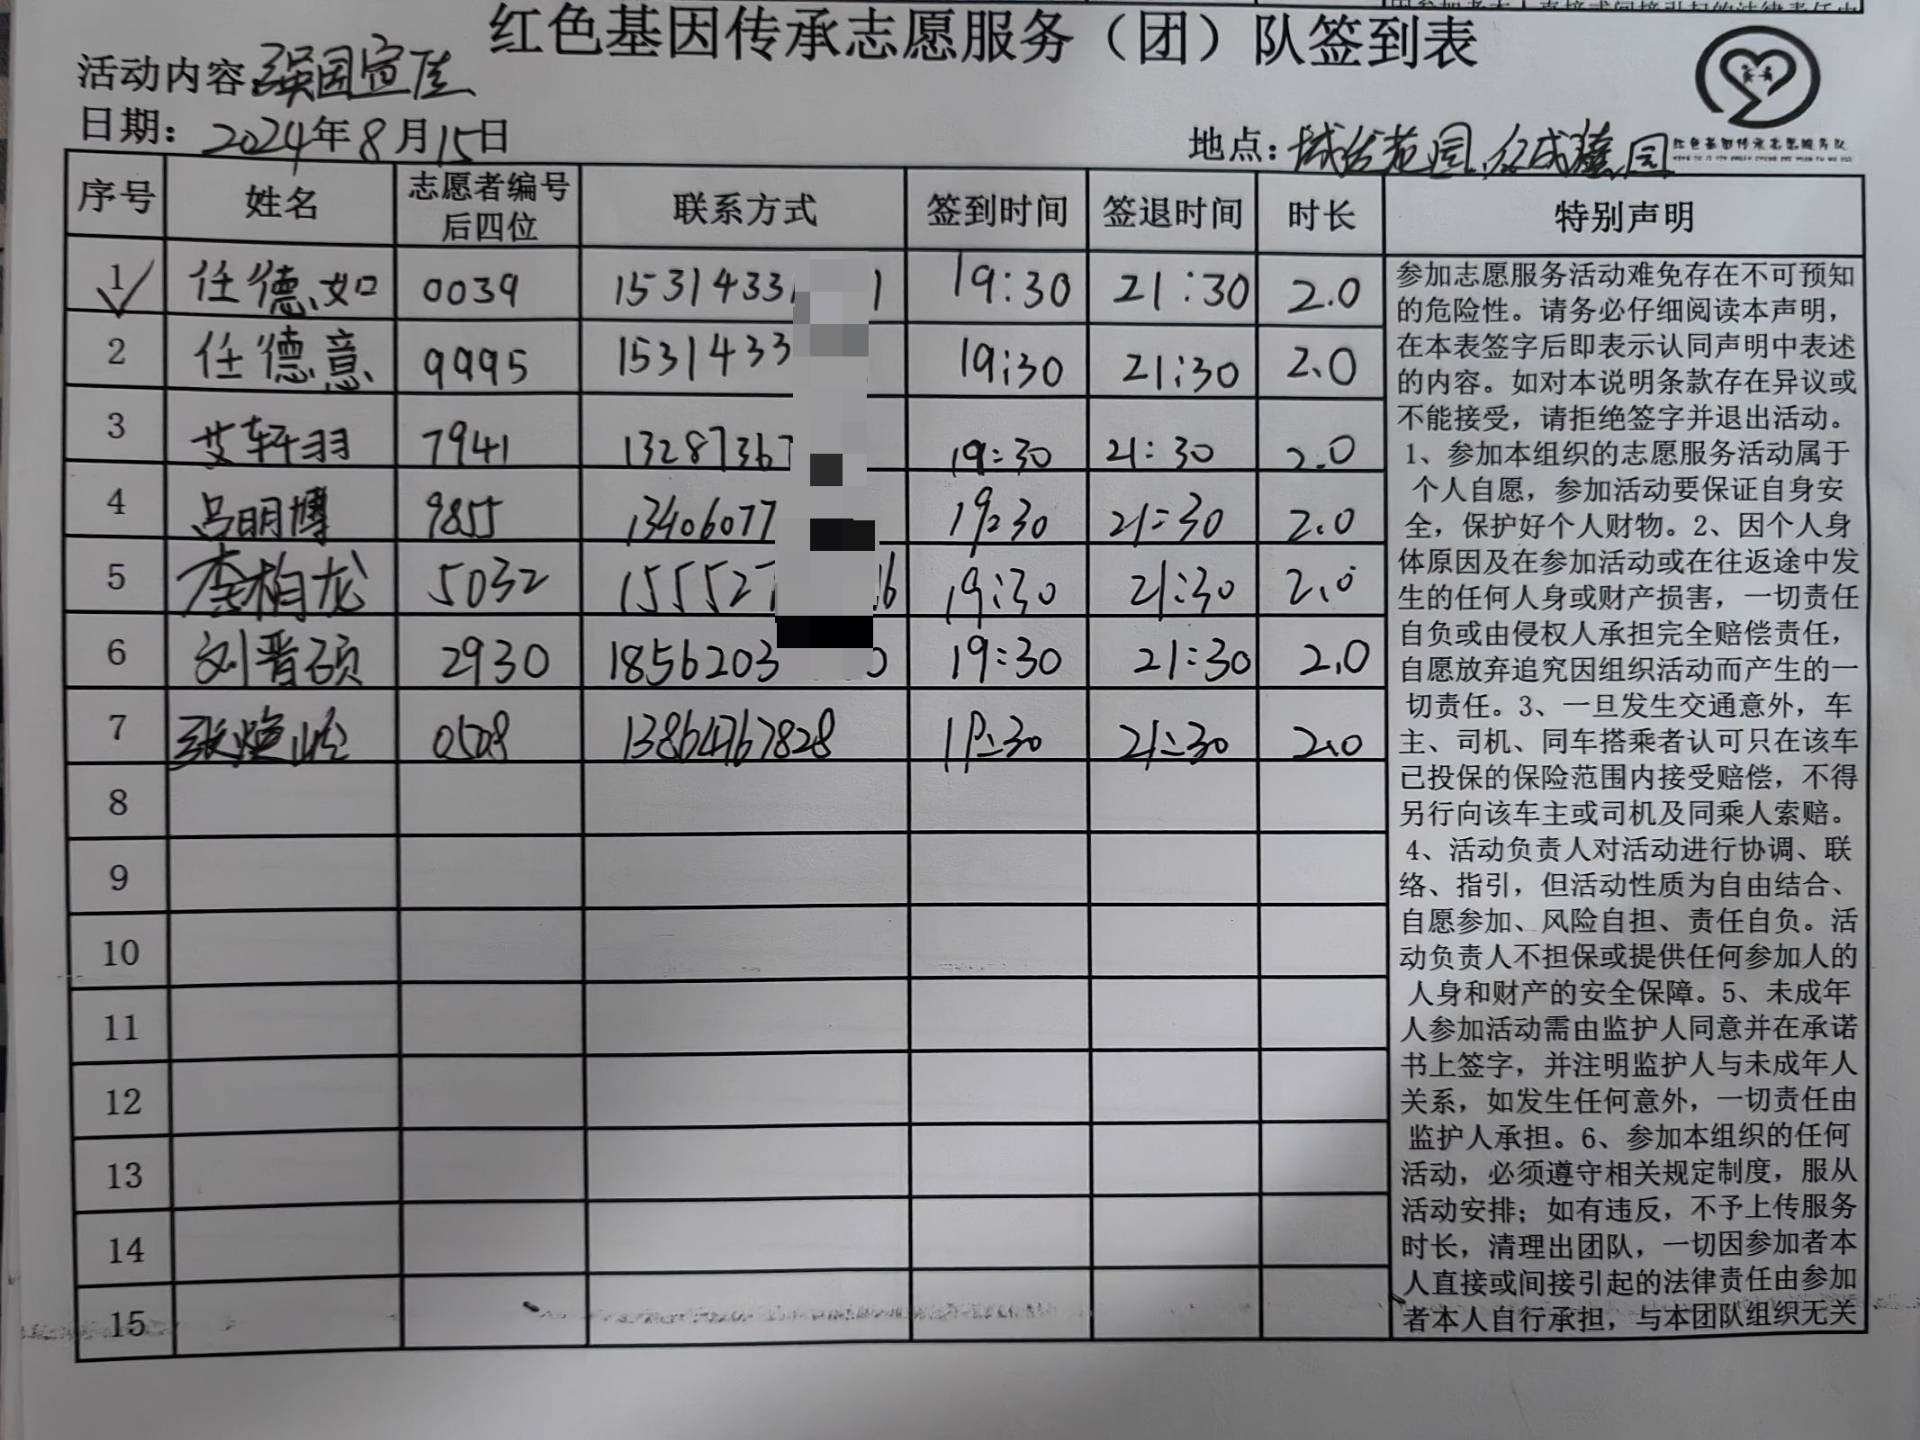 红色基因传承志愿服务（团）队签到表
活动内容:强国宣传
日期：2024年8月15日
地点：
红色基因传承志愿服务队
序号 姓名 志愿者编号后四位 联系方式 签到时间 签退时间 时长 特别声明
1 任德如 0039 1531433 1 19:30 21:30 2.0
2 任德意 9995 1531433 19:30 21:30 2.0
3 艾轩羽 7941 1328736 19:30 21:30 2.0
4 吕明博 9855 13406077 19:30 21:30 2.0
5 李柏龙 5032 155527 16 19:30 21:30 2.0
6 刘晋硕 2930 1856203 0 19:30 21:30 2.0
7 张 0508 13864767828 19:30 21:30 2.0
8
9
10
11
12
13
14
15
参加志愿服务活动难免存在不可预知
的危险性。请务必仔细阅读本声明，
在本表签字后即表示认同声明中表述
的内容。如对本说明条款存在异议或
不能接受，请拒绝签字并退出活动。
1、参加本组织的志愿服务活动属于
个人自愿，参加活动要保证自身安
全，保护好个人财物。2、因个人身
体原因及在参加活动或在往返途中发
生的任何人身或财产损害，一切责任
自负或由侵权人承担完全赔偿责任，
自愿放弃追究因组织活动而产生的一
切责任。3、一旦发生交通意外，车
主、司机、同车搭乘者认可只在该车
已投保的保险范围内接受赔偿，不得
另行向该车主或司机及同乘人索赔。
4、活动负责人对活动进行协调、联
络、指引，但活动性质为自由结合、
自愿参加、风险自担、责任自负。活
动负责人不担保或提供任何参加人的
人身和财产的安全保障。5、未成年
人参加活动需由监护人同意并在承诺
书上签字，并注明监护人与未成年人
关系，如发生任何意外，一切责任由
监护人承担。6、参加本组织的任何
活动，必须遵守相关规定制度，服从
活动安排；如有违反，不予上传服务
时长，清理出团队，一切因参加者本
人直接或间接引起的法律责任由参加
者本人自行承担，与本团队组织无关